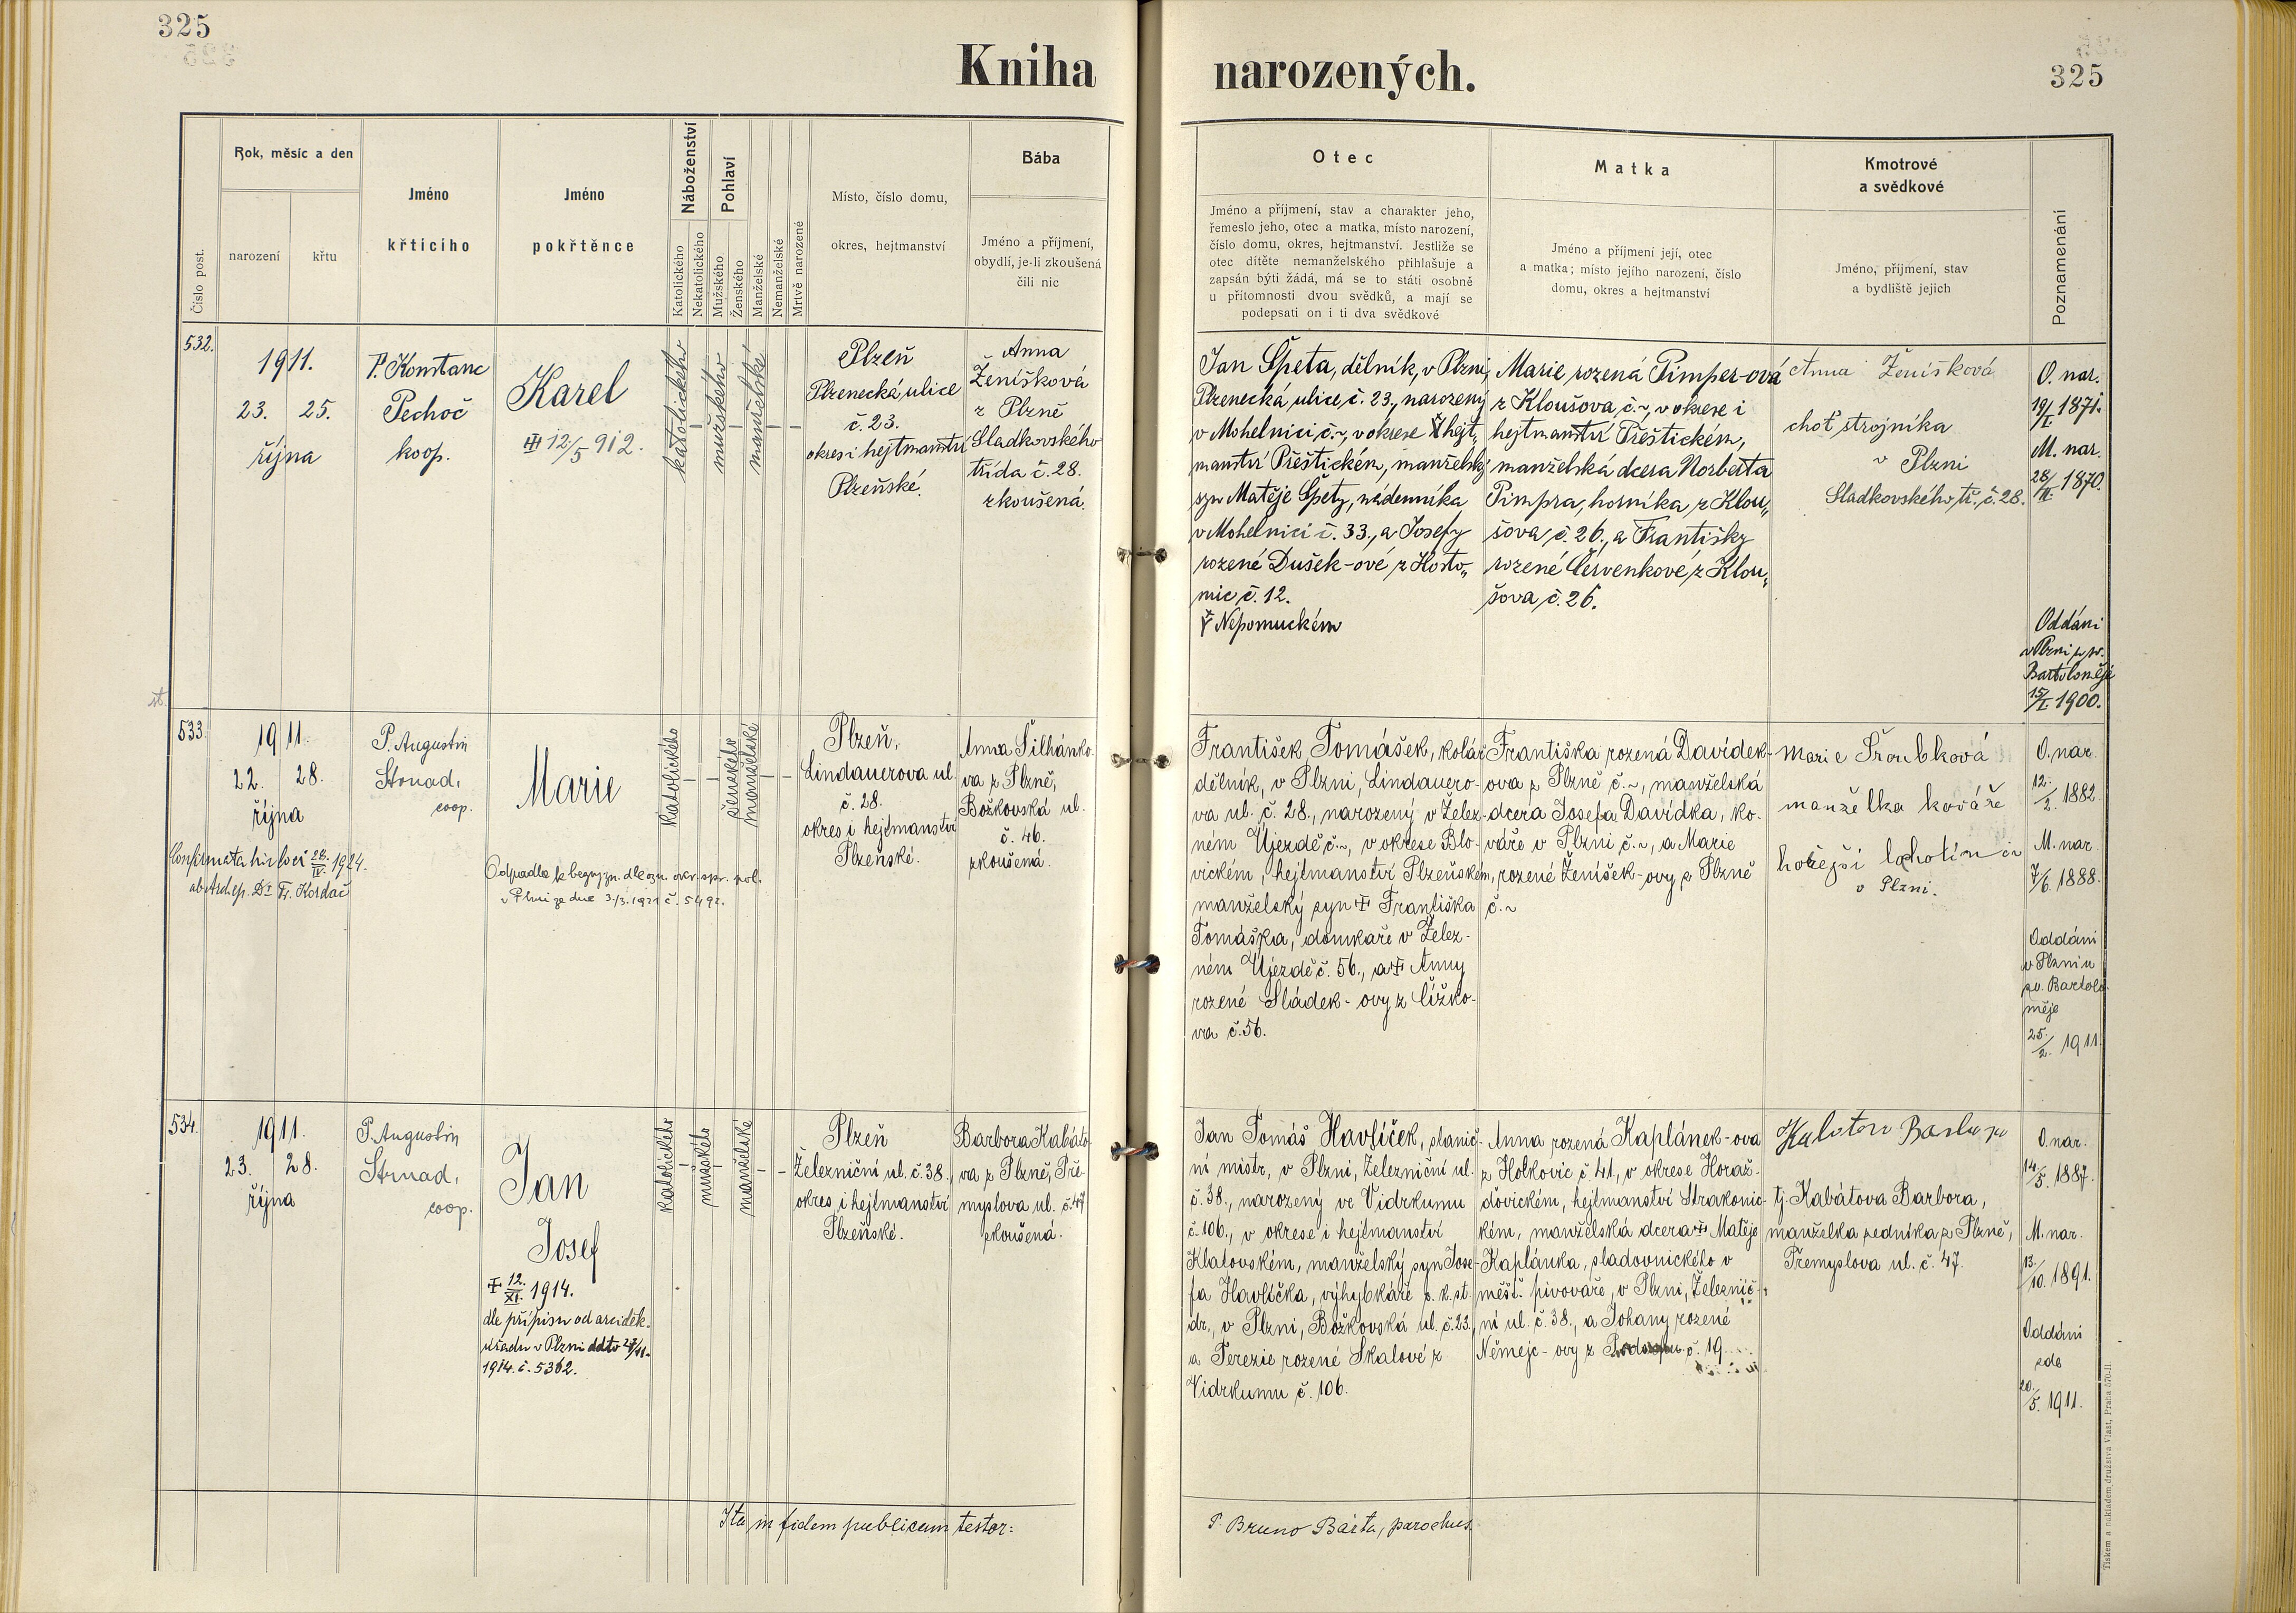 325
Kniha narozených.
325
Číslo post.
Rok, měsíc a den
narození
křtu
Jméno
křtícího
Jméno
pokřtěnce
Náboženství
Katolického
Nekatolického
Pohlaví
Mužského
Ženského
Manželské
Nemanželské
Mrtvě narozené
Místo, číslo domu,
okres, hejtmanství
Bába
Jméno a příjmení,
obydlí, je-li zkoušená
čili nic
Otec
Jméno a příjmení, stav a charakter jeho,
řemeslo jeho, otec a matka, místo narození,
číslo domu, okres, hejtmanství. Jestliže se
otec dítěte nemanželského přihlašuje a
zapsán býti žádá, má se to státi osobně
u přítomnosti dvou svědků, a mají se
podepsati on i ti dva svědkové
Matka
Jméno a příjmení její, otec
a matka; místo jejího narození, číslo
domu, okres a hejtmanství
Kmotrové
a svědkové
Jméno, příjmení, stav
a bydliště jejich
Poznamenání
532.
1911.
23. 25.
října
P. Konstanc
Pechoč
koop.
Karel
12/5 912.
katolického
mužského
manželské
Plzeň
Plzenecká ulice
č. 23.
okres i hejtmanství
Plzeňské.
Anna
Ženíšková
z Plzně
Sladkovského
třída č. 28.
zkoušená.
Jan Špeta, dělník, v Plzni,
Plzenecká ulice, č. 23., narozený
v Mohelnici č. ~, v okrese hejt„
manství Přeštickém, manželský
syn Matěje Špety, nádenníka
v Mohelnici č. 33., a Josefy
rozené Dušek-ové z Horto„
nic č. 12.
Nepomuckém
Marie rozená Pimper-ová
z Kloušova, č. ~, v okrese i
hejtmanství Přeštickém,
manželská dcera Norberta
Pimpra, horníka z Klou„
šova, č. 26., a Františky
rozené Červenkové, z Klou„
šova, č. 26.
Anna Ženíšková
choť strojníka
v Plzni
Sladkovského tř. č. 28.
O. nar.
19/I. 1871.
M. nar.
28/ 1870.
Oddáni
v Plzni u sv.
Bartoloměje
15/I. 1900.
533.
1911.
22. 28.
října
Confirmata hic loci 1924.
ab Archep. Dr Fr. Kordač
P. Augustin
Strnad,
coop.
Marie
Odpadla k bezvyzn. dle ozn. okr. spr. pol.
v Plzni ze dne 3./3. 1921 č. 5492.
katolického
ženského
manželské
Plzeň,
Lindauerova ul.
č. 28.
okres i hejtmanství
Plzeňské.
Anna Šilhánko-
va z Plzně,
Božkovská ul.
č. 46.
zkoušená.
František Tomášek, kolář
dělník, v Plzni, Lindauero-
va ul. č. 28., narozený v Želez-
ném Újezdě č. ~, v okrese Blo-
vickém, hejtmanství Plzeňském,
manželský syn † Františka
Tomáška, domkaře v Želez-
ném Újezdě č. 56., a † Anny
rozené Sládek-ovy z Čížko-
va č. 56.
Františka rozená Davídek-
ova z Plzně č. ~, manželská
dcera Josefa Davídka, ko-
váře v Plzni č. ~, a Marie
rozené Ženíšek-ovy z Plzně
č. ~
Marie Šroubková
manželka kováře
v Plzni.
O. nar.
12./2. 1882.
M. nar.
7/6. 1888.
Oddáni
v Plzni u
sv. Bartolo-
měje
25./2. 1911.
534.
1911.
23. 28.
října
P. Augustin
Strnad,
coop.
Jan
Josef
† 12./XI. 1914.
dle přípisu od arciděk.
úřadu v Plzni ddto 27/11.
1914. č. 5362.
katolického
mužského
manželské
Plzeň
Železniční ul. č. 38.,
okres i hejtmanství
Plzeňské.
Barbora Kabáto-
va z Plzně, Pře-
myslova ul. č. 47
zkoušená.
Jan Tomáš Havlíček, stanič-
ní mistr, v Plzni, Železniční ul.
č. 38., narozený ve Vidrkumu
č. 106., v okrese i hejtmanství
Klatovském, manželský syn Jose-
fa Havlíčka, výhybkáře c. k. st.
dr., v Plzni, Božkovská ul. č. 23.,
a Terezie rozené Skalové z
Vidrkumu č. 106.
Anna rozená Kaplánek-ova
z Holkovic č. 41, v okrese Horaž-
ďovickém, hejtmanství Strakonic-
kém, manželská dcera † Matěje
Kaplánka, sladovnického v
měšť. pivováře, v Plzni, Železnič-
ní ul. č. 38., a Johany rozené
Němejc-ovy z č. 19
tj. Kabátova Barbora,
manželka zedníka z Plzně,
Přemyslova ul. č. 47.
O. nar.
14/5. 1887.
M. nar.
13./10. 1891.
Oddáni
zde
20./5. 1911.
Ita in fidem publicam testor:
P. Bruno Bárta, parochus.
Tiskem a nákladem družstva Vlast, Praha 570-II